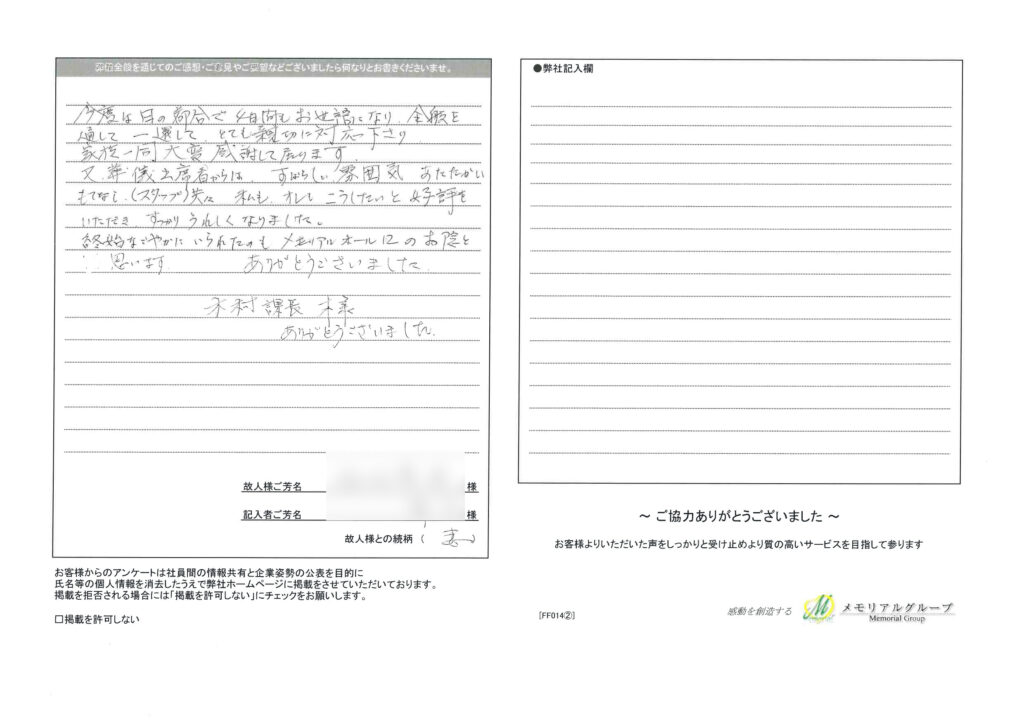 弊社全般を通じてのご感想・ご意見やご要望などございましたら何なりとお書きくださいませ。
今度は日の都合で4日間もお世話になり、全般を
通して一還して、とても親切に対応下さり
家族一同大変感謝して居ります。
又葬儀出席者からは、すばらしい雰囲気 あたたかい
もてなし、(スタッフ)英 私も、オレも こうしたいと好評を
いただき、すっかりうれしくなりました。
終始なごやかにいられたのもメモリアルホール12のお陰と
思います ありがとうございました
木村課長様
ありがとうございました。
故人様ご芳名 様
記入者ご芳名 様
故人様との続柄 ( 妻 )
お客様からのアンケートは社員間の情報共有と企業姿勢の公表を目的に
氏名等の個人情報を消去したうえで弊社ホームページに掲載をさせていただいております。
掲載を拒否される場合には「掲載を許可しない」にチェックをお願いします。
□掲載を許可しない
●弊社記入欄
~ ご協力ありがとうございました ~
お客様よりいただいた声をしっかりと受け止めより質の高いサービスを目指して参ります
[FF014②]
感動を創造する メモリアルグループ
Memorial Group